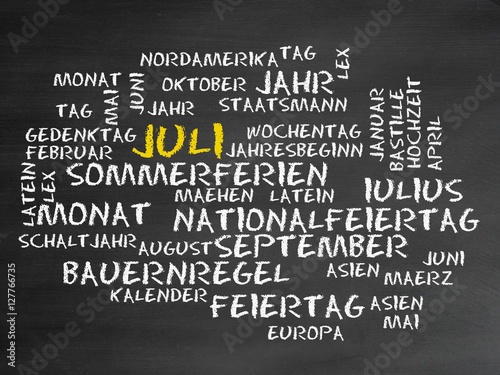 NORDAMERIKA TAG LEX
MONAT JUNI OKTOBER JAHR
TAG MAI JAHR STAATSMANN JANUAR BASTILLE HOCHZEIT APRIL
GEDENKTAG JULI WOCHENTAG
FEBRUAR JAHRESBEGINN
LATEIN LEX SOMMERFERIEN
MAEHEN LATEIN IULIUS
MONAT NATIONALFEIERTAG
SCHALTJAHR AUGUST SEPTEMBER
BAUERNREGEL ASIEN JUNI
MAERZ
KALENDER FEIERTAG ASIEN
MAI
EUROPA
127766735
Adobe Stock